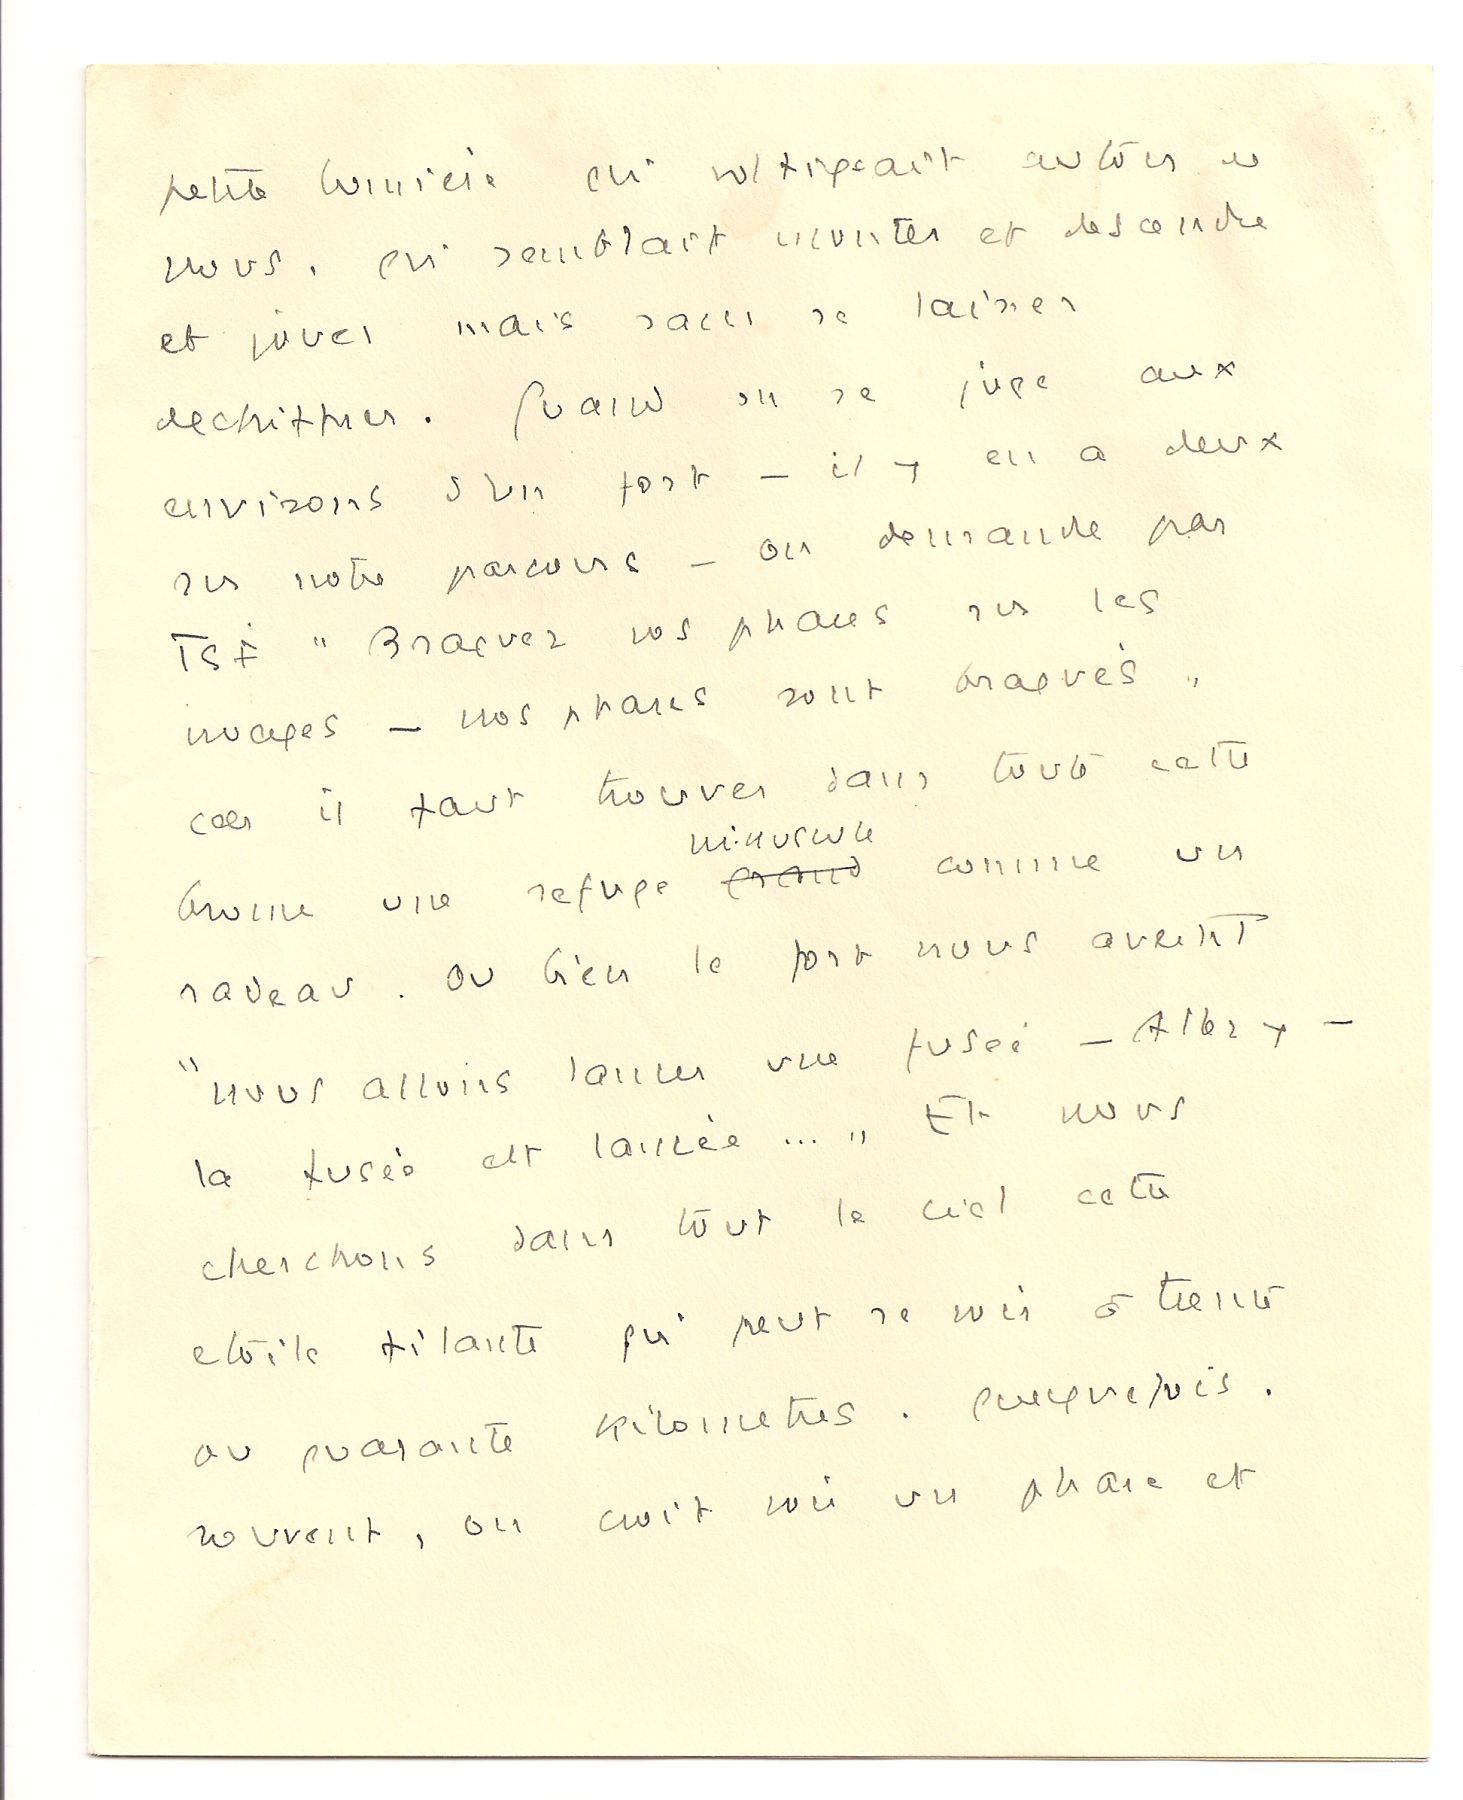 petite lumière qui voltigeait autour de
nous. qui semblait monter et descendre
et jouer mais sans se laisser
dechiffrer. Quand on se juge aux
environs d'un fort – il y en a deux
sur notre parcours – on demande par
TSF " Braquez vos phares sur les
nuages – nos phares sont braqués "
car il faut trouver dans toute cette
brume une refuge minuscule grand comme un
radeau. Ou bien le fort nous avertit
"nous allons lancer une fusée – Allez y –
la fusée est lancée ... " Et nous
cherchons dans tout le ciel cette
etoile filante qui peut se voir à trente
ou quarante kilometres. quelquefois.
souvent, on croit voir un phare et